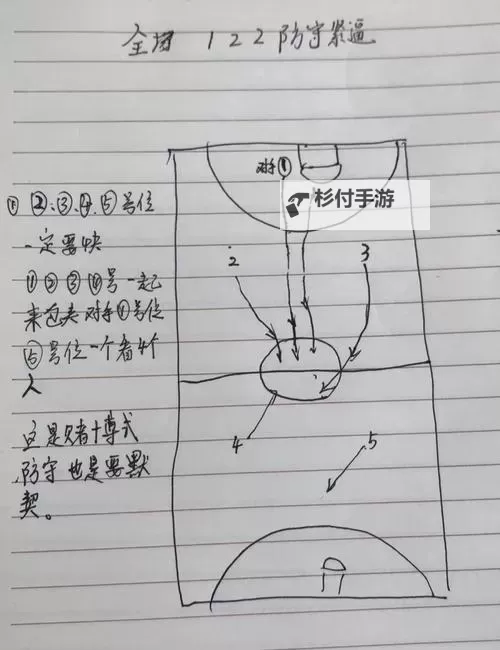 全场 122防守紧逼
对手①
杉付手游
① ②、③、④、⑤号位
一定要快
①②③④号一起
来包夹对手①号位
⑤号位一个看4个
人
这是赌博式
防守也是要默
契。
2
3
4
5